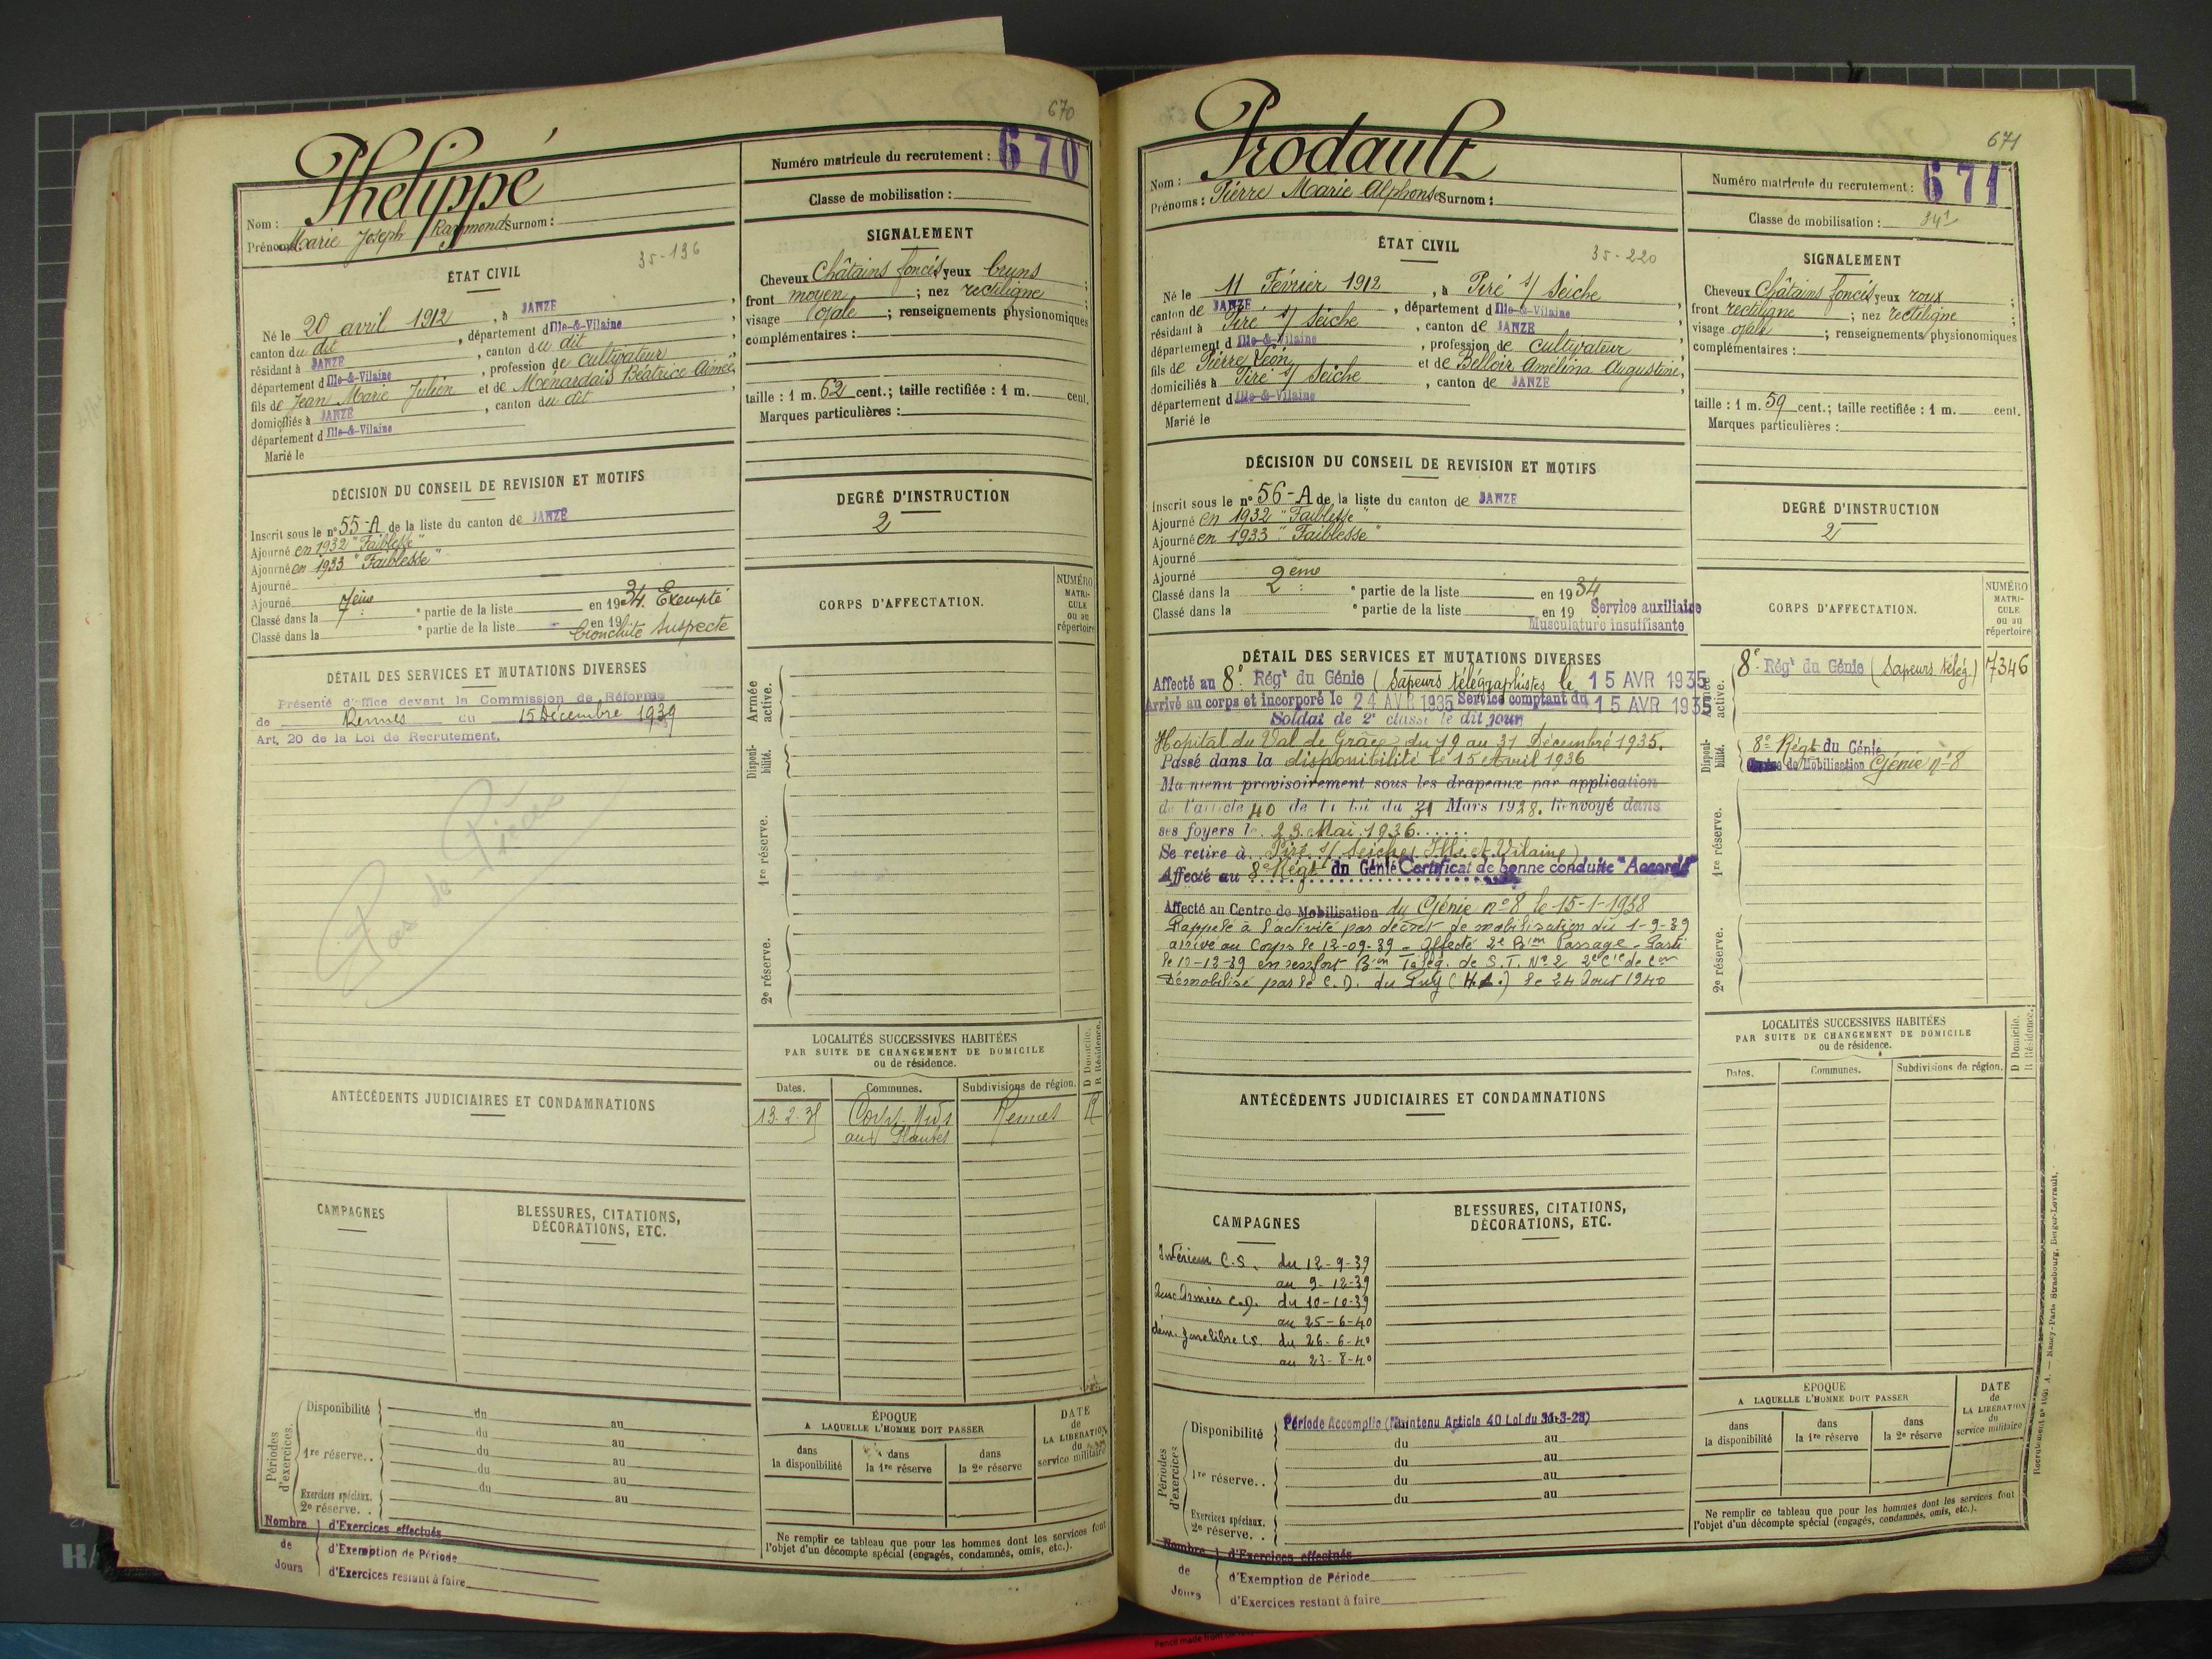 670
Phelippé
Nom :
Prénoms Marie Joseph Raymond Surnom :
35-136
ÉTAT CIVIL
Né le 20 avril 1912, à JANZÉ
canton du dit, département d'Ille-&-Vilaine,
résidant à JANZÉ, canton du dit
département d'Ille-&-Vilaine, profession de cultivateur
fils de Jean Marie Julien et de Menardais Béatrice Aimée,
domiciliés à JANZÉ, canton du dit,
département d'Ille-&-Vilaine
Marié le
Numéro matricule du recrutement : 670
Classe de mobilisation :
SIGNALEMENT
Cheveux Châtains foncés yeux bruns ;
front moyen ; nez rectiligne ;
visage ovale ; renseignements physionomiques
complémentaires :
taille : 1 m. 62 cent.; taille rectifiée : 1 m. cent.
Marques particulières :
DÉCISION DU CONSEIL DE REVISION ET MOTIFS
Inscrit sous le n° 55-A de la liste du canton de JANZÉ
Ajourné en 1932 "Faiblesse"
Ajourné en 1933 "Faiblesse"
Ajourné
Ajourné
Classé dans la 7eme ° partie de la liste en 1934. Exempté
Classé dans la ° partie de la liste en 19
bronchite suspecte
DEGRÉ D'INSTRUCTION
2
DÉTAIL DES SERVICES ET MUTATIONS DIVERSES
Présenté d'office devant la Commission de Réforme
de Rennes du 15 Décembre 1939
Art. 20 de la Loi de Recrutement.
Pas de Pièce
CORPS D'AFFECTATION.
NUMÉRO MATRI-CULE ou au répertoire
Armée active.
Disponi-bilité.
1re réserve.
2e réserve.
LOCALITÉS SUCCESSIVES HABITÉES
PAR SUITE DE CHANGEMENT DE DOMICILE
ou de résidence.
D Domicile.
R Résidence.
Dates. Communes. Subdivisions de région.
13-2-35 Corps Nuds Rennes R
aux Plantes
ANTÉCÉDENTS JUDICIAIRES ET CONDAMNATIONS
CAMPAGNES
BLESSURES, CITATIONS,
DÉCORATIONS, ETC.
Périodes d'exercices.
Disponibilité du au
du au
1re réserve.. du au
du au
Exercices spéciaux. du au
2e réserve. .
Nombre de Jours
d'Exercices effectués
d'Exemption de Période
d'Exercices restant à faire
ÉPOQUE
A LAQUELLE L'HOMME DOIT PASSER
dans la disponibilité
dans la 1re réserve
dans la 2e réserve
DATE de LA LIBÉRATION du service militaire
Ne remplir ce tableau que pour les hommes dont les services font
l'objet d'un décompte spécial (engagés, condamnés, omis, etc.).
671
Prodault
Nom :
Prénoms : Pierre Marie Alphonse Surnom :
35-220
ÉTAT CIVIL
Né le 11 Février 1912, à Piré s/ Seiche
canton de JANZÉ, département d'Ille-&-Vilaine,
résidant à Piré s/ Seiche, canton de JANZÉ
département d'Ille-&-Vilaine, profession de cultivateur
fils de Pierre Léon et de Belloir Amélina Augustine,
domiciliés à Piré s/ Seiche, canton de JANZÉ,
département d'Ille-&-Vilaine
Marié le
Numéro matricule du recrutement : 671
Classe de mobilisation : 34
SIGNALEMENT
Cheveux Châtains foncés yeux roux ;
front rectiligne ; nez rectiligne ;
visage ovale ; renseignements physionomiques
complémentaires :
taille : 1 m. 59 cent.; taille rectifiée : 1 m. cent.
Marques particulières :
DÉCISION DU CONSEIL DE REVISION ET MOTIFS
Inscrit sous le n° 56-A de la liste du canton de JANZÉ
Ajourné en 1932 "Faiblesse"
Ajourné en 1933 "Faiblesse"
Ajourné
Ajourné
Classé dans la 2eme ° partie de la liste en 1934
Classé dans la ° partie de la liste en 19 Service auxiliaire
Musculature insuffisante
DEGRÉ D'INSTRUCTION
2
DÉTAIL DES SERVICES ET MUTATIONS DIVERSES
Affecté au 8e Régt du Génie (Sapeurs télégraphistes le 15 AVR 1935
Arrivé au corps et incorporé le 24 AVR 1935 Service comptant du 15 AVR 1935
Soldat de 2e classe le dit jour
Hopital du Val de Grâce du 19 au 31 Décembre 1935.
Passé dans la disponibilité le 15 Avril 1936
Maintenu provisoirement sous les drapeaux par application
de l'article 40 de la loi du 31 Mars 1928. Renvoyé dans
ses foyers le 23 Mai 1936
Se retire à Piré s/ Seiche (Ille et Vilaine)
Affecté au 8e Régt du Génie Certificat de bonne conduite "Accordé"
Affecté au Centre de Mobilisation du Génie n°8 le 15-1-1938
Rappelé à l'activité par décret de mobilisation du 1-9-39
arrivé au Corps le 12-09-39 - Affecté 2e Bon Passage - Parti
le 10-12-39 en renfort Bon Télég. de S.T. N°2 2e Cie de
Démobilisé par le C.D. du Puy (H.L.) le 24 Aout 1940
CORPS D'AFFECTATION.
NUMÉRO MATRI-CULE ou au répertoire
Armée active.
8e Régt du Génie (Sapeurs télég.) 7346
Disponi-bilité.
8e Régt du Génie
Centre de Mobilisation Génie n°8
1re réserve.
2e réserve.
LOCALITÉS SUCCESSIVES HABITÉES
PAR SUITE DE CHANGEMENT DE DOMICILE
ou de résidence.
D Domicile.
R Résidence.
Dates. Communes. Subdivisions de région.
ANTÉCÉDENTS JUDICIAIRES ET CONDAMNATIONS
CAMPAGNES
BLESSURES, CITATIONS,
DÉCORATIONS, ETC.
Intérieur C.S. du 12-9-39
au 9-12-39
aux Armées C.D. du 10-10-39
au 25-6-40
dém. zone libre CS du 26-6-40
au 23-8-40
Périodes d'exercices
Disponibilité Période Accomplie (Maintenu Article 40 Loi du 31-3-28)
du au
1re réserve.. du au
du au
du au
Exercices spéciaux.
2e réserve. .
Nombre de Jours
d'Exercices effectués
d'Exemption de Période
d'Exercices restant à faire
ÉPOQUE
A LAQUELLE L'HOMME DOIT PASSER
dans la disponibilité
dans la 1re réserve
dans la 2e réserve
DATE de LA LIBÉRATION du service militaire
Ne remplir ce tableau que pour les hommes dont les services font
l'objet d'un décompte spécial (engagés, condamnés, omis, etc.).
Nancy-Paris Strasbourg, Berger-Levrault.
Pencil made from